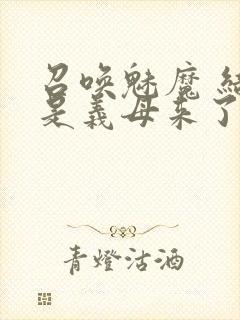 召唤魅魔 结
是义母来了
青燈沽酒